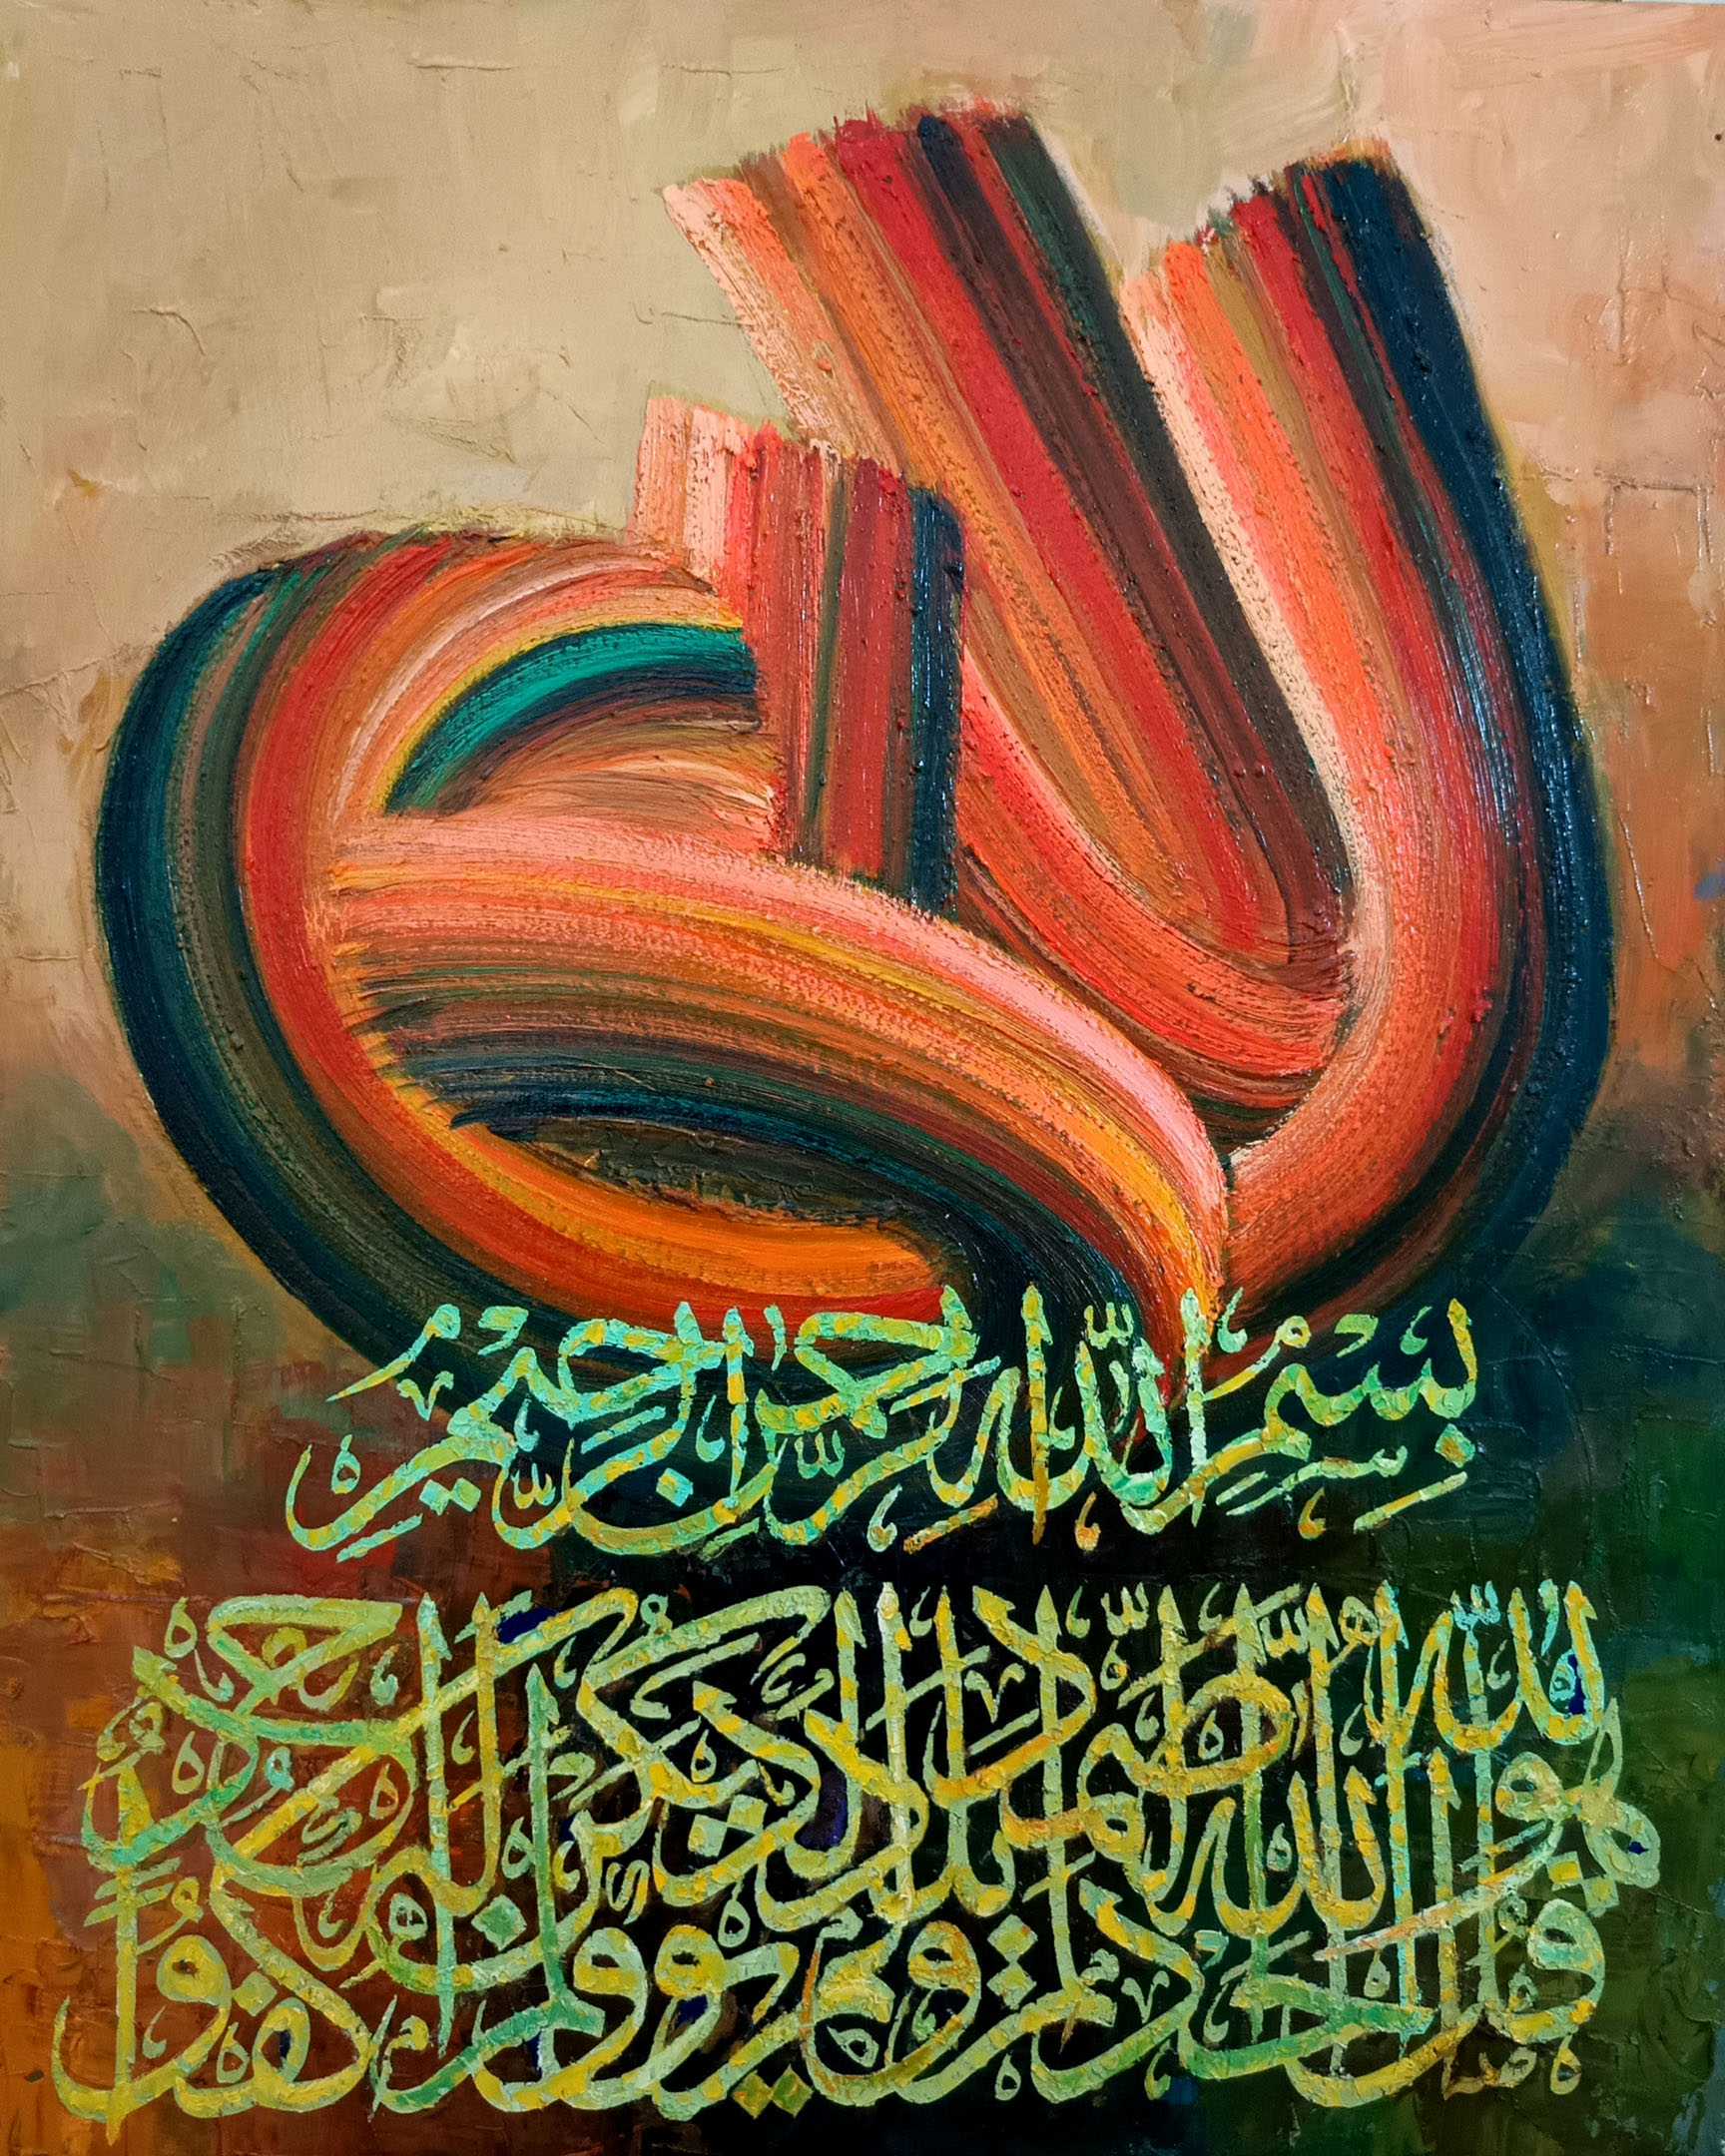 بِسْمِ اللَّهِ الرَّحْمَٰنِ الرَّحِيمِ
قُلْ هُوَ اللَّهُ أَحَدٌ اللَّهُ الصَّمَدُ لَمْ يَلِدْ وَلَمْ يُولَدْ وَلَمْ يَكُنْ لَهُ كُفُوًا أَحَدٌ